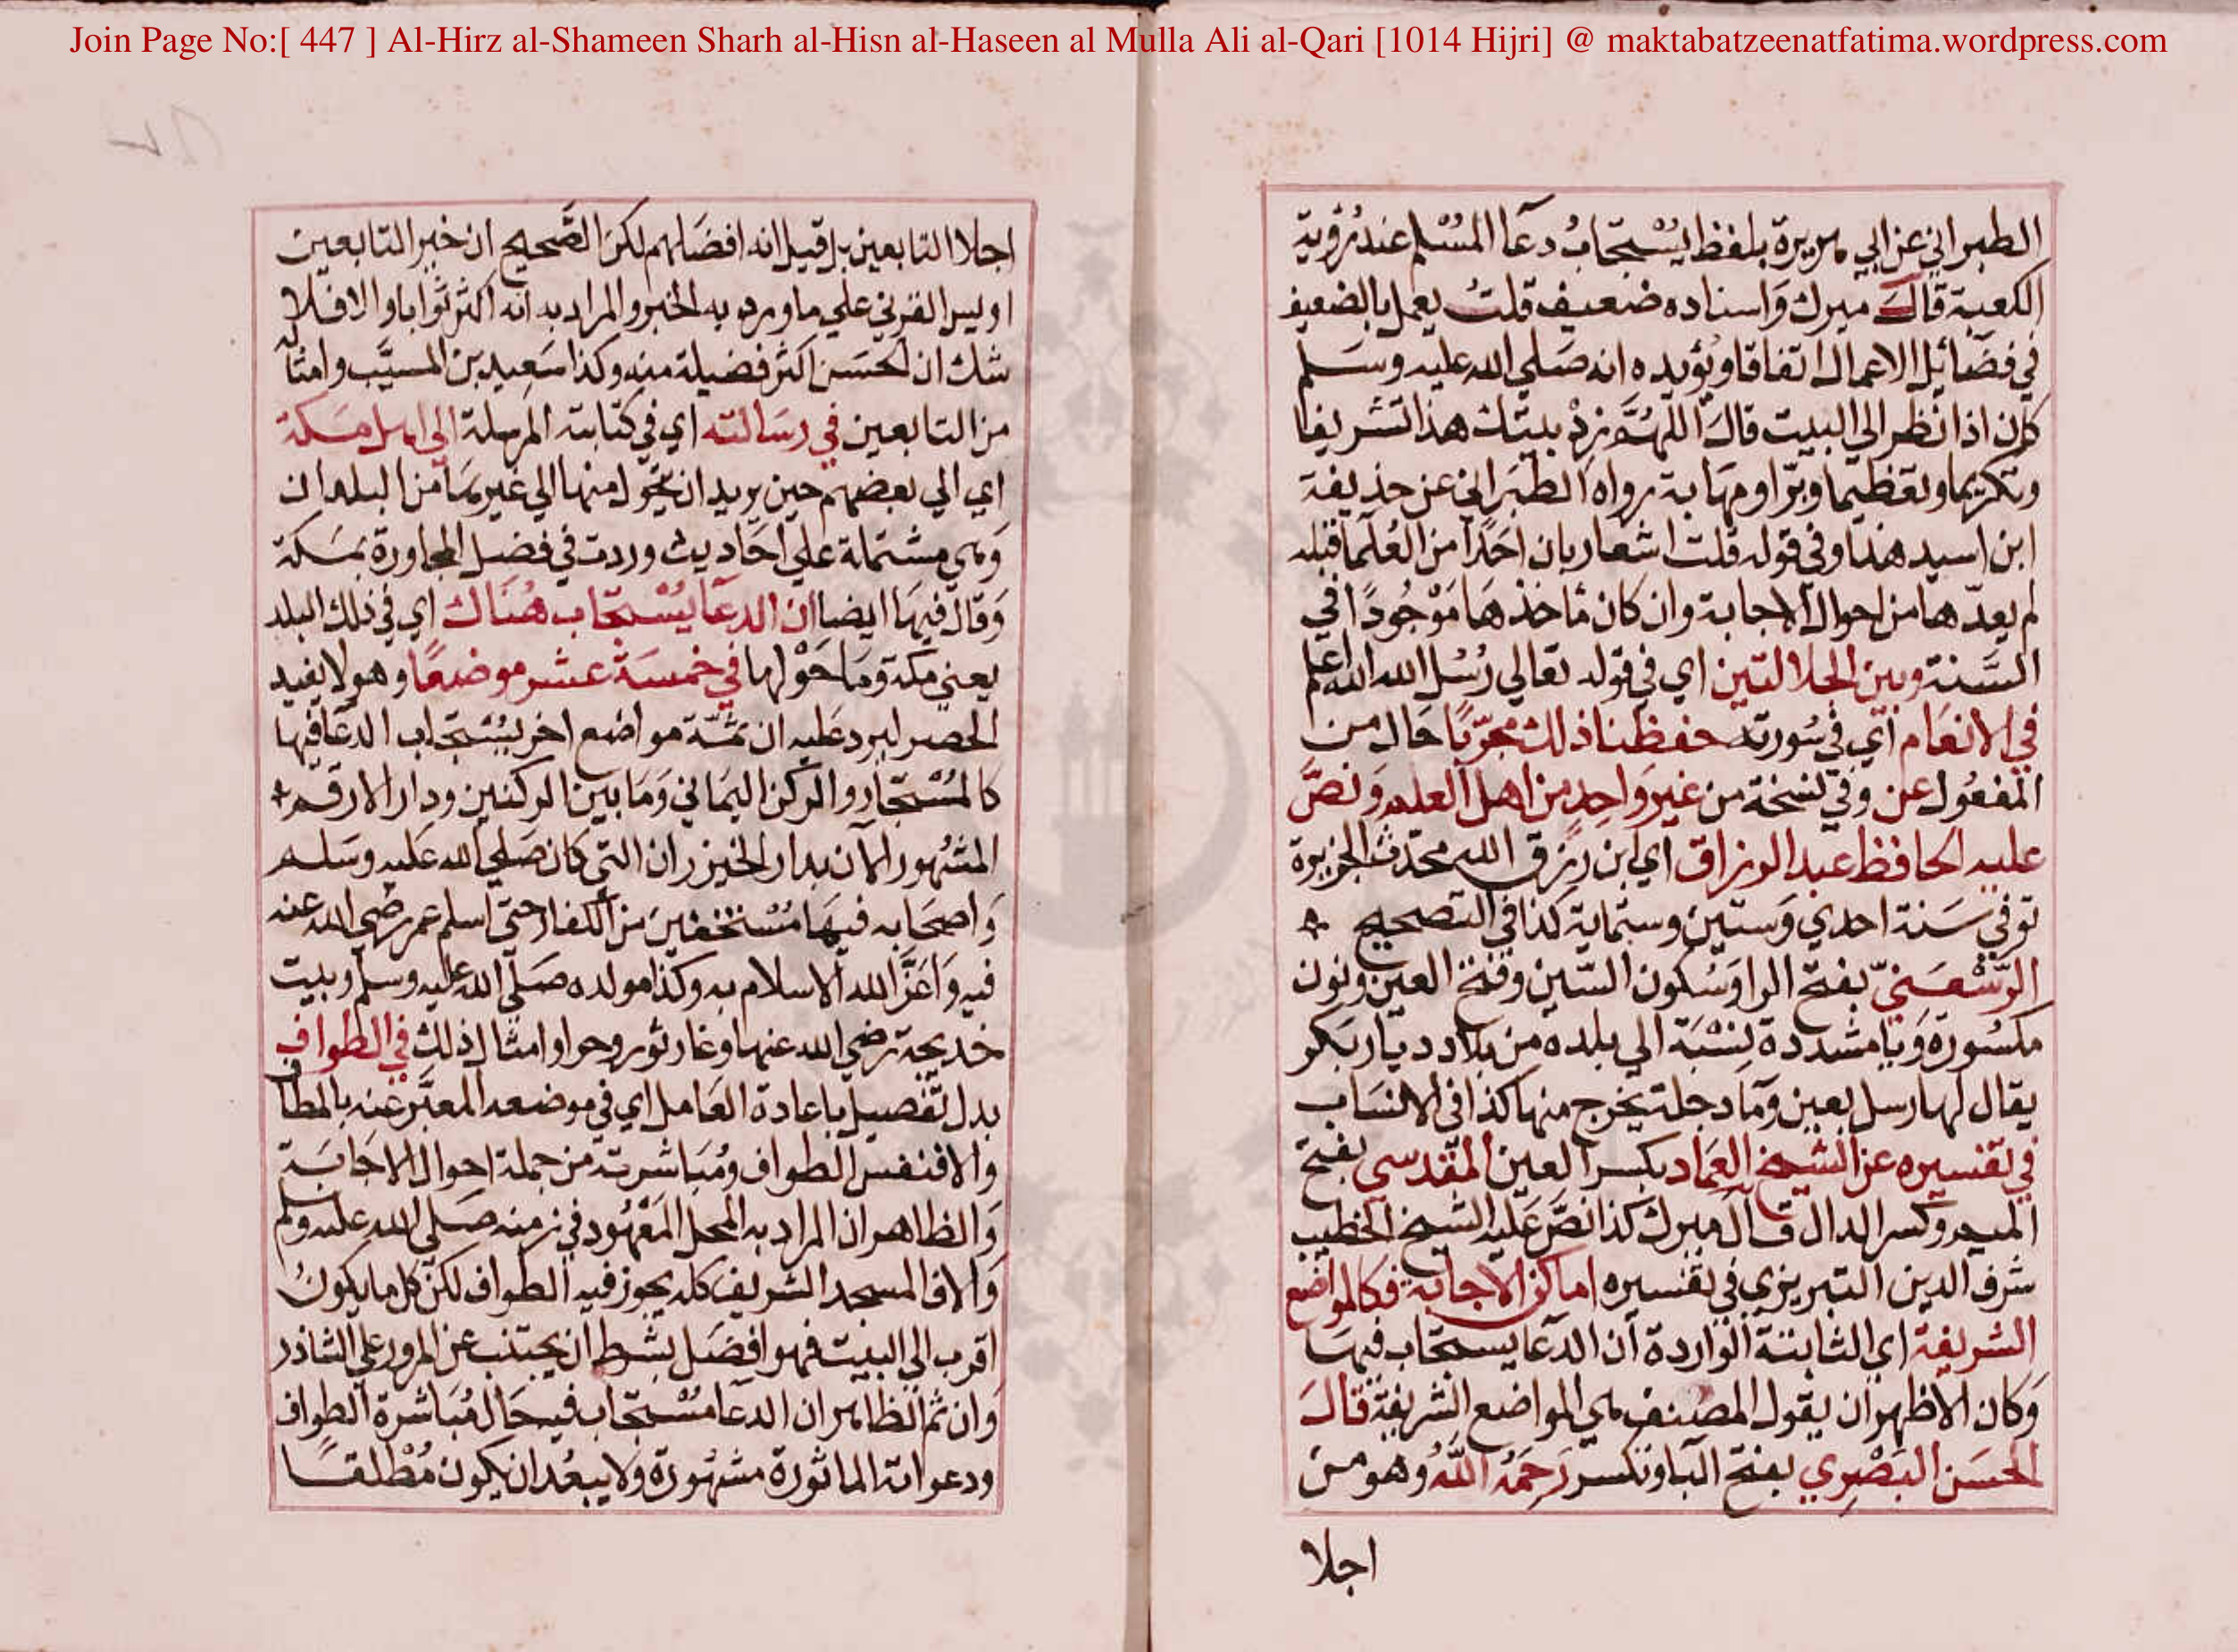 Join Page No:[ 447 ] Al-Hirz al-Shameen Sharh al-Hisn al-Haseen al Mulla Ali al-Qari [1014 Hijri] @ maktabatzeenatfatima.wordpress.com
الطبراني عن ابي هريرة بلفظ يُسْتجَابُ دعآ المُسْلم عند رؤية
الكعبة قالَ ميرك وَاسناده ضعيف قلتُ يعمل بالضعيف
في فضَائيل الاعمال اتفاقا ويُؤيده انه صَلي الله عليه وسَلم
كان اذا نظر الي البيت قالَ اللهُمَّ زِدْ بيتك هذا تشريفا
وتكريما وتعظيما وبرّا ومهَابة رواه الطبَراني عن حذيفة
ابن اسيد هذا وفي قوله قلت اشعار بان احَدًا من العُلَما قبله
لم يعدّها من احوال الاجابة وان كان مَاخذهَا مَوْجُودًا في
السَّنة وبين الجلالتين اي في قوله تعالي رُسُل الله الله اعلم
في الانعَام اي في سُورته حفظنا ذلك مجرّبًا حَال من
المفعُول عن وفي نسخة من غير وَاحِد من اهل العلم وَنصَّ
عليه الحافظ عبد الرزاق اي ابن رِزق الله محدّث الجزيرة
توفي سَنة احدي وَستين وستماية كذا في التصحيح
الرّسْعَنيّ بفتح الرا وَسُكون السّين وفتح العين ونون
مكسُورة وَيا مشددة نِسْبَة الي بلدة من بلاد ديار بَكر
يقال لها رسل بعين وَمَا دجلة يخرج منها كذا في الانسَاب
في تفسيره عن الشيخ العِمَاد بكسر العين المَقدسي بفتح
الميم وكسر الدال قال ميرك كذا نصَّ عَليه الشيخ الخطيب
شرف الدين التبريزي في تفسيره اماكن الاجابة فكالمواضع
الشريفة اي الثابتة الواردة ان الدعَا يستجَاب فيهَا
وَكان الاظهر ان يقول المصنف هي المواضع الشريفة قالَ
الحسَن البَصْرِي بفتح البا وتكسر رَحِمَهُ اللَّهُ وهو من
اجلا
اجلا التابعين بل قيل انه افضَلهم لكن الصَّحيح ان خير التابعين
اويس القرني علي ما ورد به الخبر والمراد به انه اكثر ثوابا والا فلا
شك ان الحسَن اكثر فضيلة منه وكذا سَعِيد بن المسيَّب وامثاله
من التابعين في رسَالته اي في كتابته المرسلة الي اهل مَكة
اي الي بعضهم حين يريد ان يتحَول منها الي غيرهَا من البلدان
وَهي مشتملة علي احَاديث وردت في فضل المجاورة بمَكة
وَقال فيهَا ايضا ان الدعَا يُسْتجَاب هُنَاك اي في ذلك البلد
يعني مكة وَمَا حَوْلها في خمسَة عشر موضعًا وهو لا يفيد
الحصر ليرد عَليه ان ثمَّة مواضع اخر يُسْتجَاب الدعَا فيها
كالمُسْتجَار والركن اليمَاني وَمَا بين الركنين ودار الارقم
المشهور الآن بدار الخيزران التي كان صَلي الله عَليه وسَلم
وَاصحَابه فيهَا مُسْتخفين من الكفار حتي اسلم عمر رضي الله عنه
فيه وَاعَزَّ الله الاسلام به وكذا مولده صَلّي الله عليه وسلم وبيت
خديجة رضي الله عنها وغار ثور وحرا وامثال ذلك في الطواف
بدل تفصيل باعادة العَامل اي في موضعه المعبَّر عنه بالمطاف
والا فنفس الطواف وَمُبَاشرته من جملة احوال الاجَابَة
وَالظاهر ان المراد به المحل المَعْهُود في زمنه صَلي الله عليه وسلم
وَالا فالمسجد الشريف كله يجوز فيه الطواف لكن كل ما يكونُ
اقرب الي البيت فهو افضَل بشرط ان يجتنب عن المرور علي الشاذر
وَان ثم الظاهر ان الدعَا مُسْتجَاب في حَال مُبَاشرة الطواف
ودعواته الماثورة مشهُورة وَلا يبعُد ان يكون مُطْلقًا